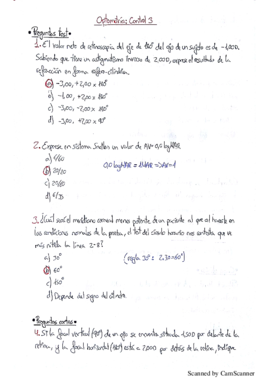 Optometría: Control 3
• Preguntas test:
1. El valor neto de retinoscopía del eje de 180º del ojo de un sujeto es de -1,00D.
Sabiendo que tiene un astigmatismo inverso de 2,00D, exprese el resultado de la
refracción en forma esfero-cilíndrica.
a) -3,00, +2,00 x 180º
b) -1,00, +2,00 x 180º
c) -3,00, -2,00 x
d) -3,00, +2,00 x 90º
2. Exprese en sistema Snellen un valor de AV= 0,0 logMAR
a) 6/60
b) 20/20
0,0 logMAR = 1 MAR => AV=1
c) 20/60
d) 6/35
3. ¿Cuál será el meridiano corneal menos potente de un paciente al que al hacerle en
las condiciones normales de la prueba, el test del círculo horario nos señala que ve
más nítida la línea 2-8?
a) 30º
(regla 30º: 2·30=60º)
b) 60º
c) 150º
d) Depende del signo del cilindro
• Preguntas cortas:
4. Si la focal vertical (90º) de un ojo se encuentra situada 1,50D por delante de la
retina, y la focal horizontal (180º) está a 2,00D por detrás de la retina, indique
Scanned by CamScanner